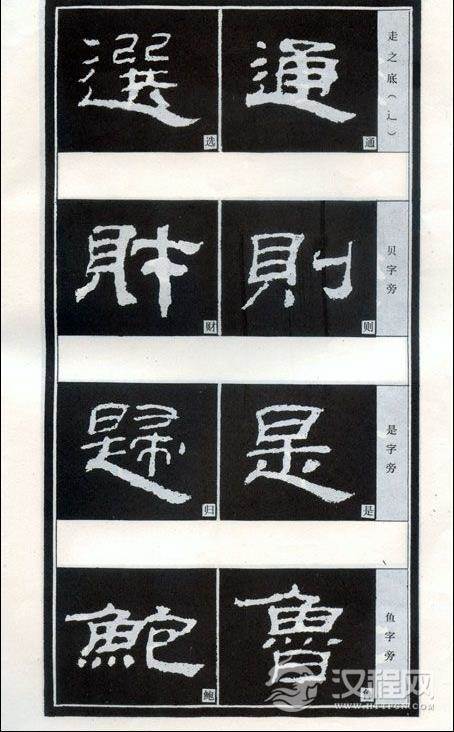 走之底（辶）
通
通
選
选
贝字旁
則
则
財
财
是字旁
是
是
歸
归
鱼字旁
魯
鮑
鲍
汉程网
WWW.HTTPCN.COM